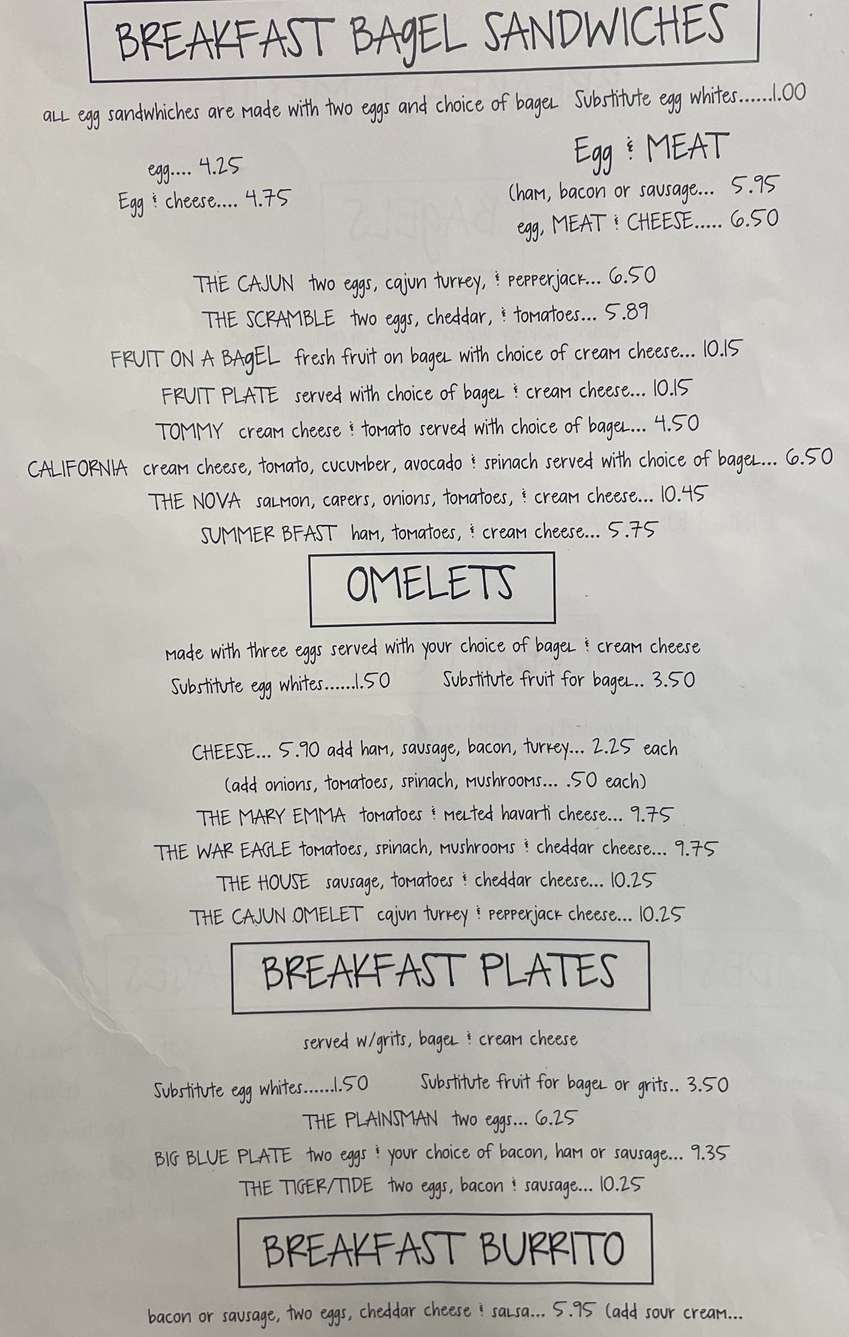 BREAKFAST BAgEL SANDWICHES
aLL egg sandwhiches are made with two eggs and choice of bagel Substitute egg whites......1.00
egg.... 4.25
Egg & cheese.... 4.75
Egg & MEAT
(ham, bacon or sausage... 5.95
egg, MEAT & CHEESE..... 6.50
THE CAJUN two eggs, cajun turkey, & pepperjack... 6.50
THE SCRAMBLE two eggs, cheddar, & tomatoes... 5.89
FRUIT ON A BAgEL fresh fruit on bagel with choice of cream cheese... 10.15
FRUIT PLATE served with choice of bagel & cream cheese... 10.15
TOMMY cream cheese & tomato served with choice of bagel... 4.50
CALIFORNIA cream cheese, tomato, cucumber, avocado & spinach served with choice of bagel... 6.50
THE NOVA salmon, capers, onions, tomatoes, & cream cheese... 10.45
SUMMER BFAST ham, tomatoes, & cream cheese... 5.75
OMELETS
made with three eggs served with your choice of bagel & cream cheese
Substitute egg whites......1.50 Substitute fruit for bagel.. 3.50
CHEESE... 5.90 add ham, sausage, bacon, turkey... 2.25 each
(add onions, tomatoes, spinach, mushrooms... .50 each)
THE MARY EMMA tomatoes & melted havarti cheese... 9.75
THE WAR EAGLE tomatoes, spinach, mushrooms & cheddar cheese... 9.75
THE HOUSE sausage, tomatoes & cheddar cheese... 10.25
THE CAJUN OMELET cajun turkey & pepperjack cheese... 10.25
BREAKFAST PLATES
served w/grits, bagel & cream cheese
Substitute egg whites......1.50 Substitute fruit for bagel or grits.. 3.50
THE PLAINSMAN two eggs... 6.25
BIG BLUE PLATE two eggs & your choice of bacon, ham or sausage... 9.35
THE TIGER/TIDE two eggs, bacon & sausage... 10.25
BREAKFAST BURRITO
bacon or sausage, two eggs, cheddar cheese & salsa... 5.95 (add sour cream...